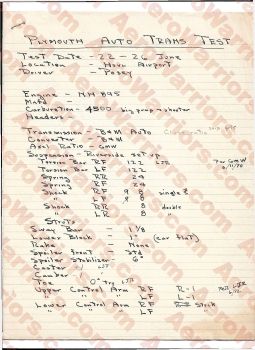 PLYMOUTH AUTO TRANS TEST
Test Date - 22 - 26 June
Location - Airport
Driver - Posey
Engine - N.H 895
Manfd
Carburetion - 4500
Headers -
Transmission - B&M Auto Close ratio
Converter - B&M
Axel Ratio - GMW
Suspension - Riverside set up
Torsion Bar RF 122
Torsion Bar LF 122
Spring RR 24
Spring LR 24
Shock RF 9 single
LF 9 "
Shock RR 8 double
LR 8 "
Struts
Sway Bar - 1 1/8
Lower Block - 1" (car flat)
Rake - None
Spoiler front - Std
Spoiler Stabilizer - 6°
Caster
Camber
Toe - 0° try 1/8
Upper Control Arm RF R-1
" " " LF L-1
Lower Control Arm RF Stock
" " LF "